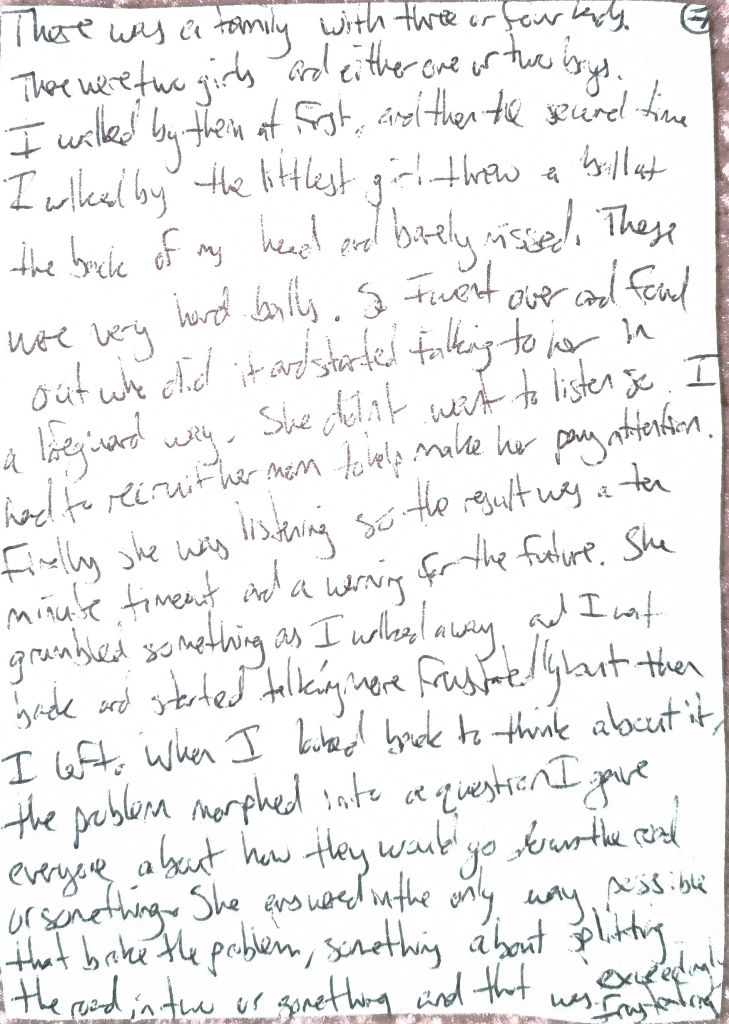 There was a family with three or four kids. 7
There were two girls and either one or two boys.
I walked by them at first, and then the second time
I walked by the littlest girl threw a ball at
the back of my head and barely missed. These
were very hard balls. So I went over and found
out who did it and started talking to her in
a lifeguard way. She didn't want to listen so I
had to recruit her mom to help make her pay attention.
Finally she was listening so the result was a ten
minute timeout and a warning for the future. She
grumbled something as I walked away and I went
back and started talking more frustratedly but then
I left. When I looked back to think about it,
the problem morphed into a question I gave
everyone about how they would go down the road
or something. She answered in the only way possible
that broke the problem, something about splitting
the road in two or something and that was exceedingly
frustrating